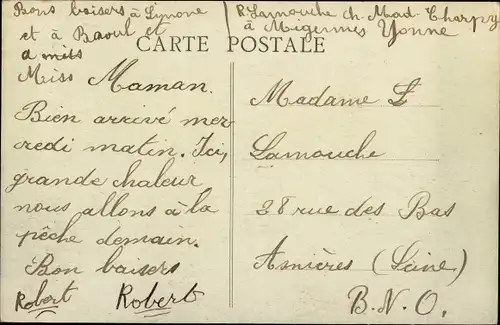 Bons baisers à Simone
et à Raoul et
à mits
R. Lamouche ch. Mad. Charpy
à Migennes Yonne
CARTE POSTALE
Miss Maman.
Bien arrivé mer
credi matin. Ici,
grande chaleur
nous allons à la
pêche demain.
Bon baisers
Robert Robert
Madame L
Lamouche
28 rue des Bas
Asnières (Seine)
B.N.O.